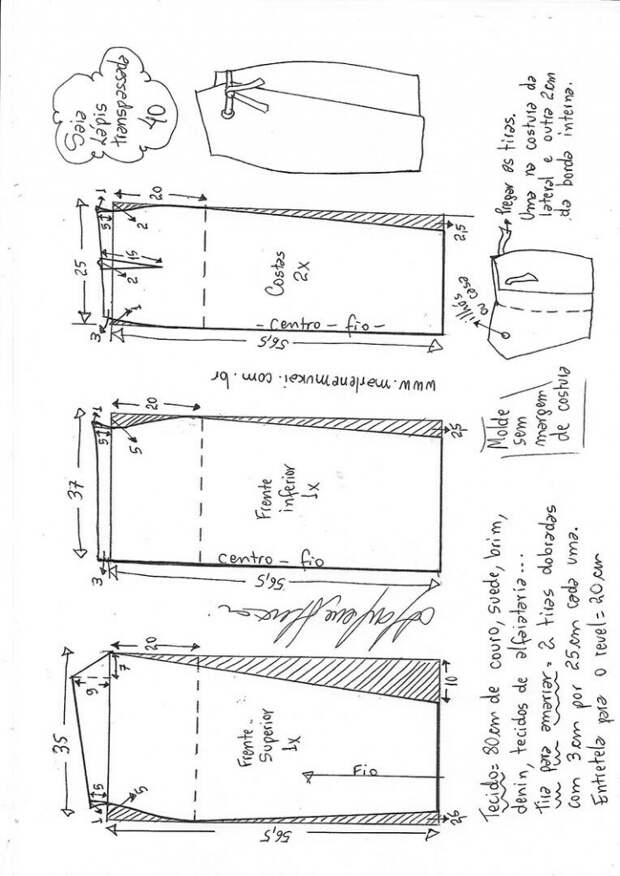 Saia
Lápis
transpassada
40
Pregar as tiras.
Uma na costura da
lateral e outra 2cm
da borda interna.
ilhós
ou casa
Molde
sem
margem
de costura
25
1
5
2
20
15
2
1
3
Costas
2x
- centro - fio -
56,5
2,5
www.marlenemukai.com.br
37
1
5
5
20
3
Frente
inferior
1x
centro - fio
56,5
25
35
9
7
20
5
5
1
Frente
Superior
1x
Fio
10
56,5
Tecido= 80cm de couro, suede, brim,
denin, tecidos de alfaiataria...
tira para amarrar= 2 tiras dobradas
com 3cm por 25cm cada uma.
Entretela para o revel= 20cm